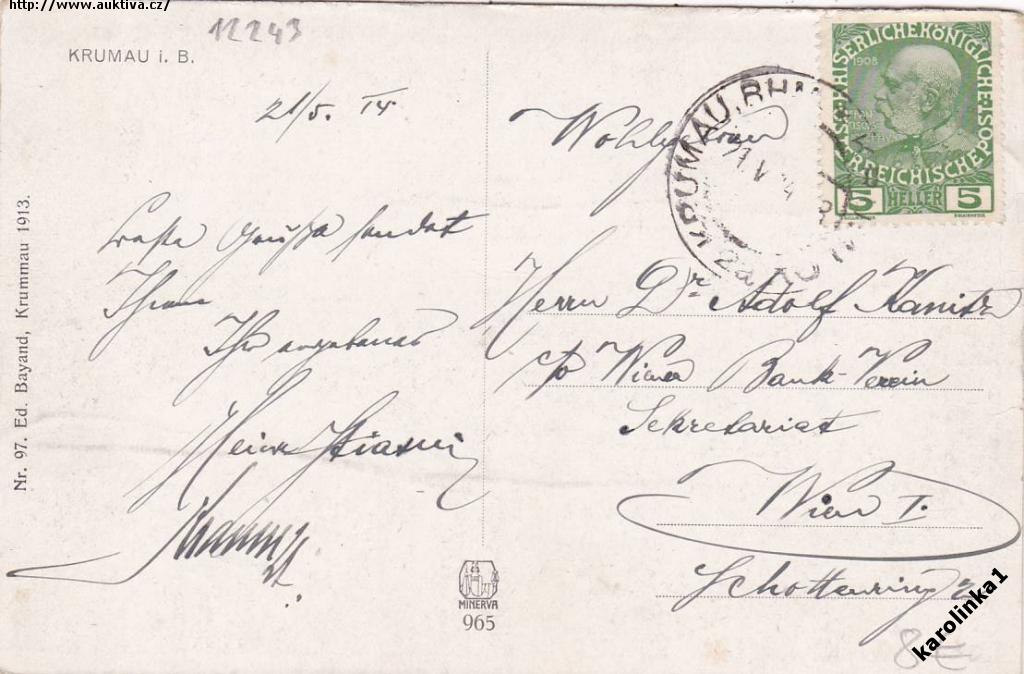 http://www.auktiva.cz/
12243
KRUMAU i. B.
21/5. 14
Beste Grüße sendet
Ihnen
Ihr ergebener
Heinr
Nr. 97. Ed. Bayand, Krummau 1913.
MINERVA
965
KAISERLICHE KÖNIGLICHE
ÖSTERREICHISCHE POST
1908
5 HELLER 5
KRUMAU
Wohlgeboren
Herrn Dr Adolf Kanitz
c/o Wiener Bank-Verein
Sekretariat
Wien I.
Schottenring 2
8€
karolinka1